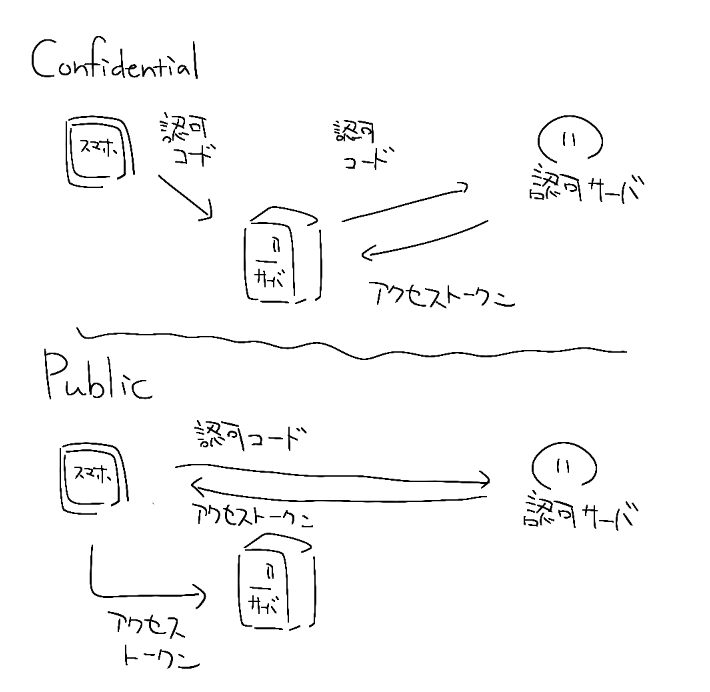 Confidential
スマホ
認可
コード
認可
コード
認可サーバ
サーバ
アクセストークン
Public
スマホ
認可コード
アクセストークン
認可サーバ
サーバ
アクセス
トークン